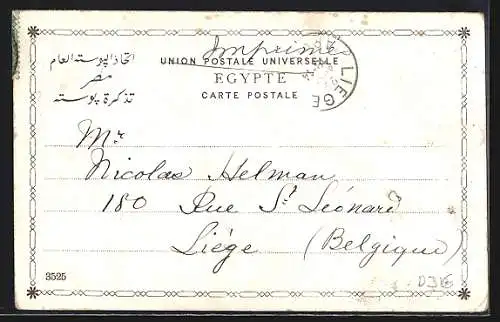 Imprimé
اتحاذ البوسته العام
مصر
تذكرة بوسته
UNION POSTALE UNIVERSELLE
EGYPTE
CARTE POSTALE
LIEGE
Mr
Nicolas Helman
180 Rue St Léonard
Liége (Belgique)
3525